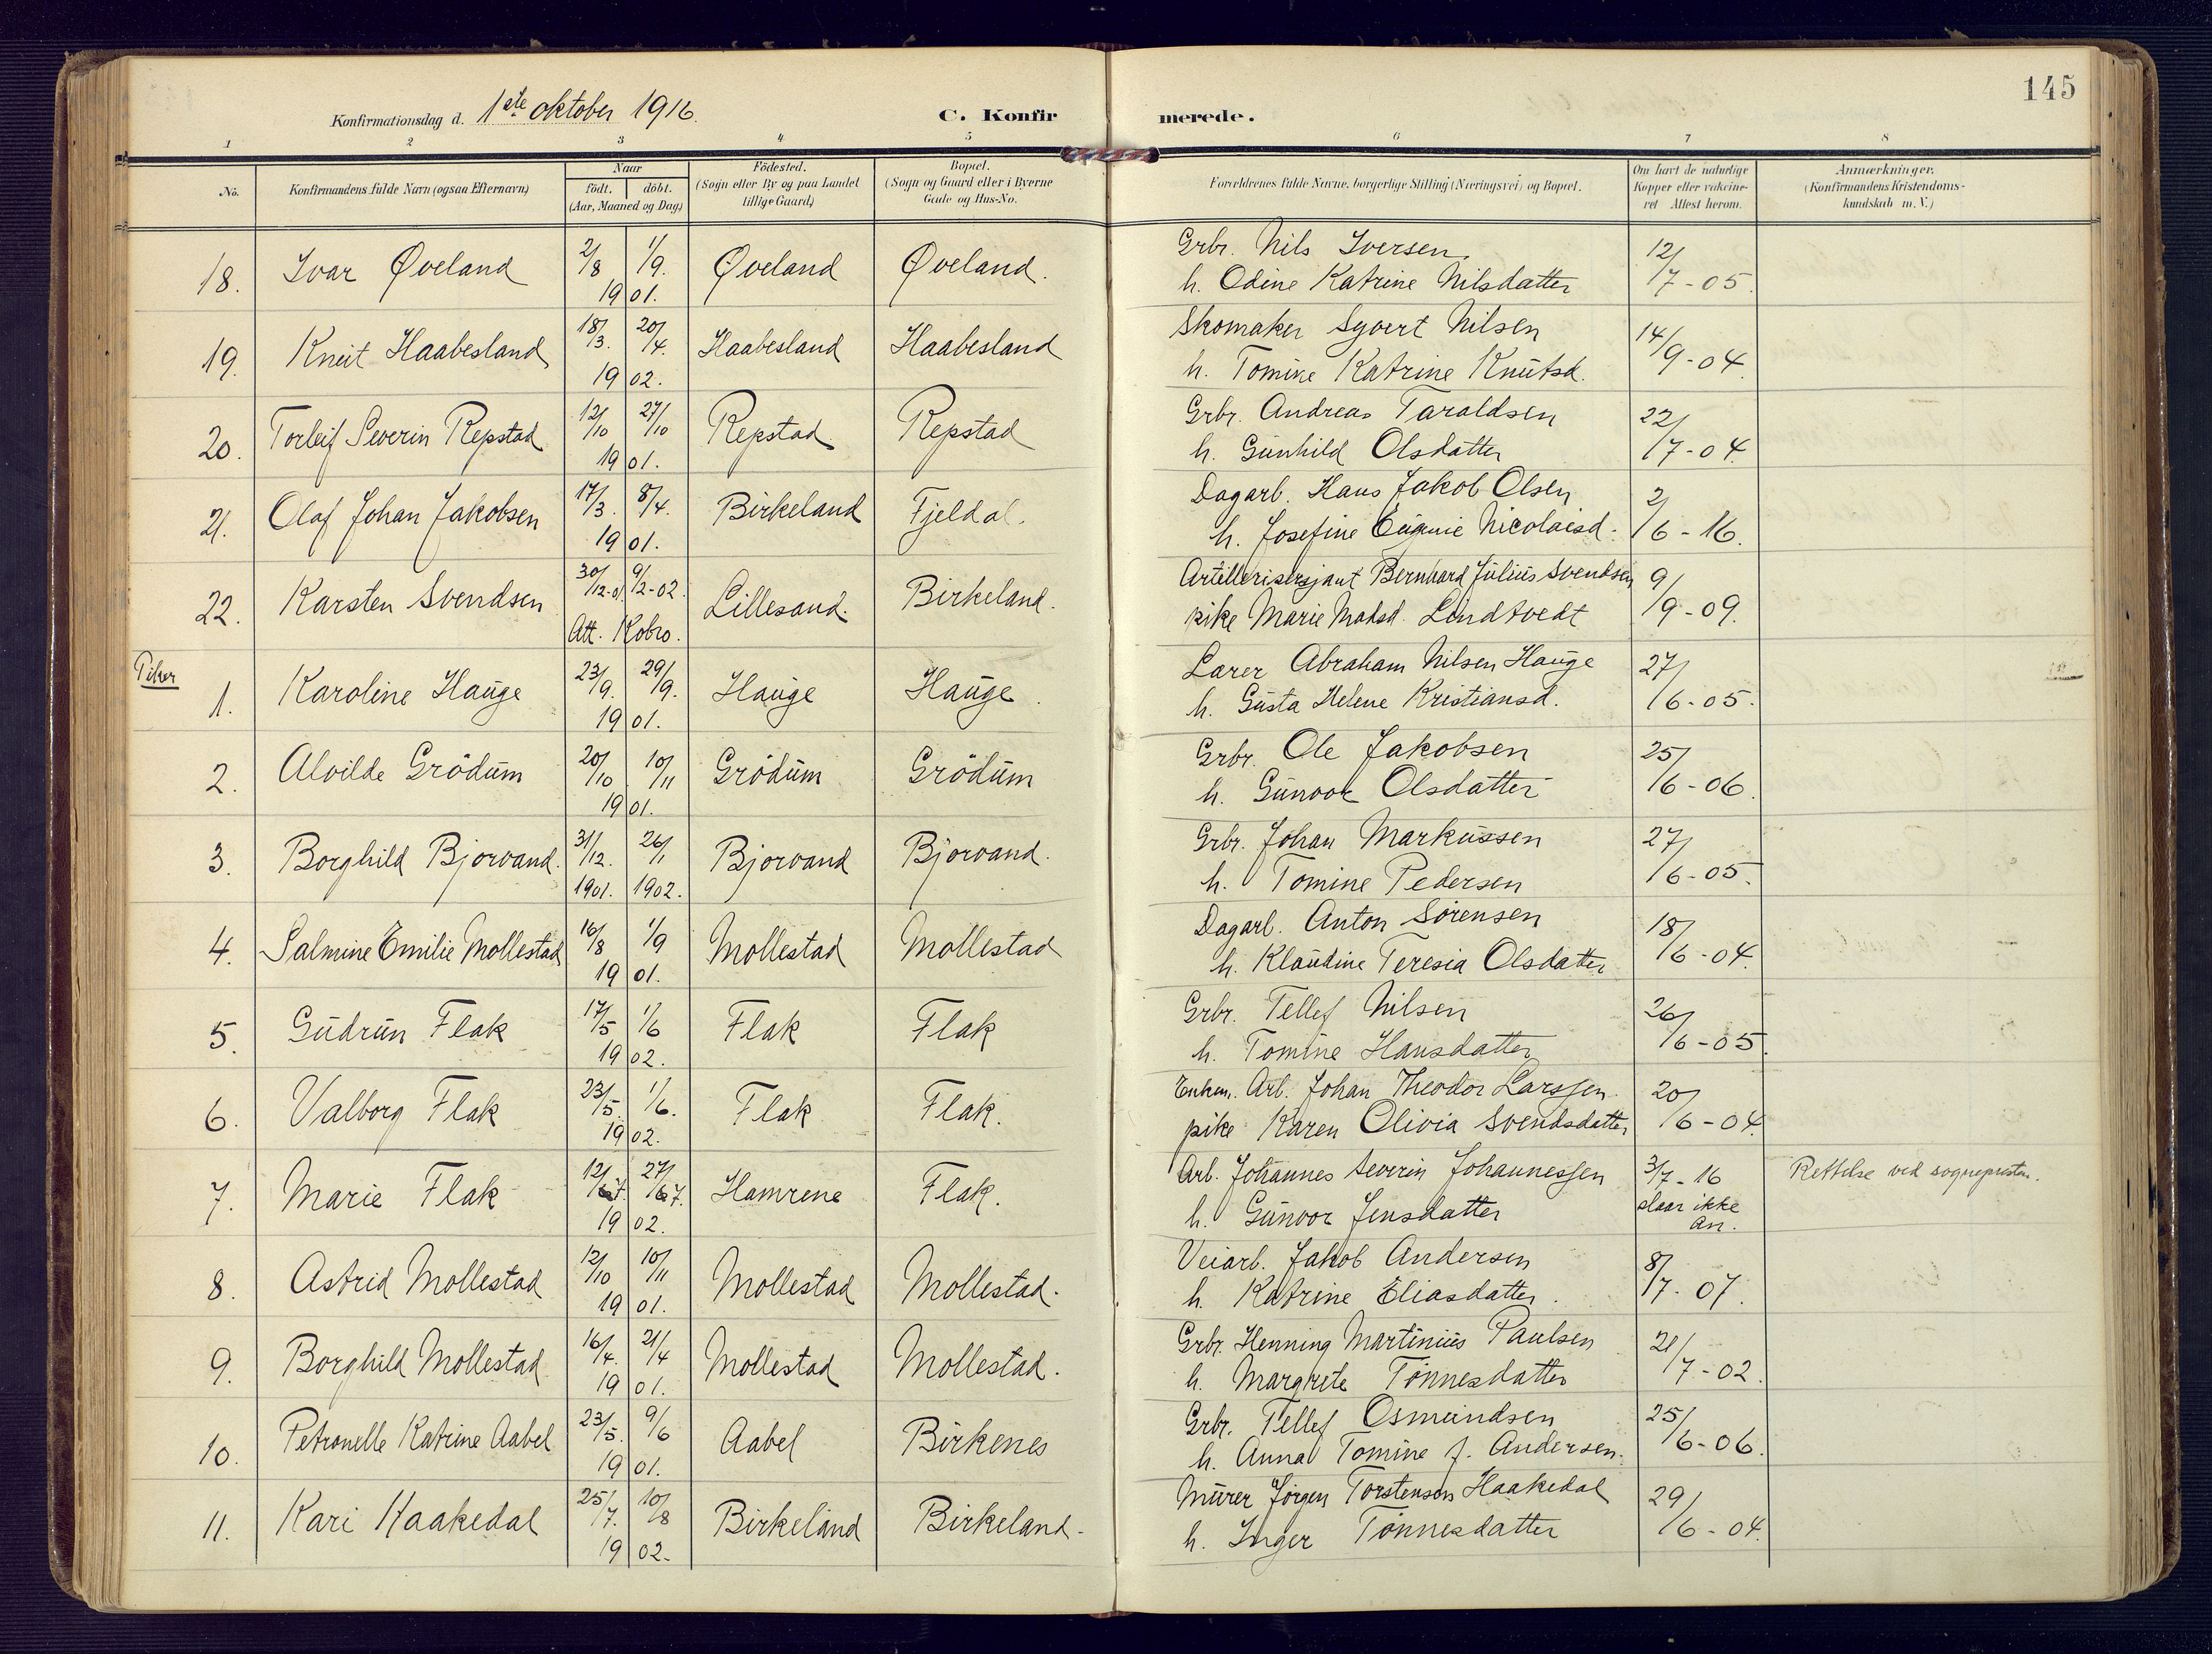 145
Konfirmationsdag d. 1ste oktober 1916.
C. Konfirmerede.
1 2 3 4 5 6 7 8
No. Konfirmandens fulde Navn (ogsaa Efternavn) Naar födt. döbt. (Aar, Maaned og Dag) Födested. (Sogn eller By og paa Landet tillige Gaard) Bopæl. (Sogn og Gaard eller i Byerne Gade og Hus-No. Forældrenes fulde Navne, borgerlige Stilling (Næringsvei) og Bopæl. Om havt de naturlige Kopper eller vakcineret. Attest herom. Anmærkninger. (Konfirmandens Kristendomskundskab m. V.)
18. Ivar Øveland 2/8 1/9. 1901. Øveland Øveland. Grbr. Nils Iversen 12/7-05.
h. Odine Katrine Nilsdatter
19. Knut Haabesland 18/3. 20/4. 1902. Haabesland Haabesland Skomaker Syvert Nilsen 14/9-04.
h. Tomine Katrine Knutsd.
20. Torleif Severin Repstad 12/10 27/10 1901. Repstad Repstad Grbr. Andreas Taraldsen 22/7-04.
h. Gunhild Olsdatter
21. Olaf Johan Jakobsen 17/3. 8/4. 1901. Birkeland Fjeldal. Dagarb. Hans Jakob Olsen 2/6-16.
h. Josefine Eugenie Nicolaisd.
22. Karsten Svendsen 30/12-01. 9/2-02. Att. Kobro. Lillesand. Birkeland. Artillerisersjant Bernhard Julius Svendsen 9/9-09.
pike Marie Madsd. Lindtvedt
Piker
1. Karoline Hauge 23/9. 29/9. 1901. Hauge Hauge. Lærer Abraham Nilsen Hauge 27/6-05.
h. Gusta Helene Kristiansd.
2. Alvilde Grödum 20/10 10/11 1901. Grödum Grödum Grbr. Ole Jakobsen 25/6-06.
h. Gunvor Olsdatter
3. Borghild Bjorvand. 31/12. 1901. 26/1 1902. Bjorvand Bjorvand. Grbr. Johan Markussen 27/6-05.
h. Tomine Pedersen
4. Salmine Emilie Mollestad 16/8 1/9 1901. Mollestad Mollestad Dagarb. Anton Sörensen 18/6-04.
h. Klaudine Teresia Olsdatter
5. Gudrun Flak 17/5 1/6 1902. Flak Flak Grbr. Tellef Nilsen 26/6-05.
h. Tomine Hansdatter
6. Valborg Flak 23/5. 1/6. 1902. Flak Flak. Enkem. Arb. Johan Theodor Larssen. 20/6-04.
pike Karen Olivia Svendsdatter
7. Marie Flak 12/7. 27/7. 1902. Hamrene Flak. Arb. Johannes Severin Johannessen 3/7-16 slaar ikke an. Rettelse ved sogneprester.
h. Gunvor Jensdatter
8. Astrid Mollestad 12/10 10/11 1901. Mollestad Mollestad. Veiarb. Jakob Andersen 8/7-07.
h. Katrine Eliasdatter.
9. Borghild Mollestad 16/4. 21/4 1901. Mollestad Mollestad. Grbr. Henning Martinius Paulsen 21/7-02.
h. Margrete Tönnesdatter
10. Petronelle Katrine Aabel 23/5. 9/6 1901. Aabel Birkenes Grbr. Tellef Osmundsen 25/6-06.
h. Anna Tomine f. Andersen.
11. Kari Haakedal 25/7. 10/8 1902. Birkeland Birkeland. Murer Jörgen Torstensen Haakedal 29/6-04.
h. Inger Tönnesdatter